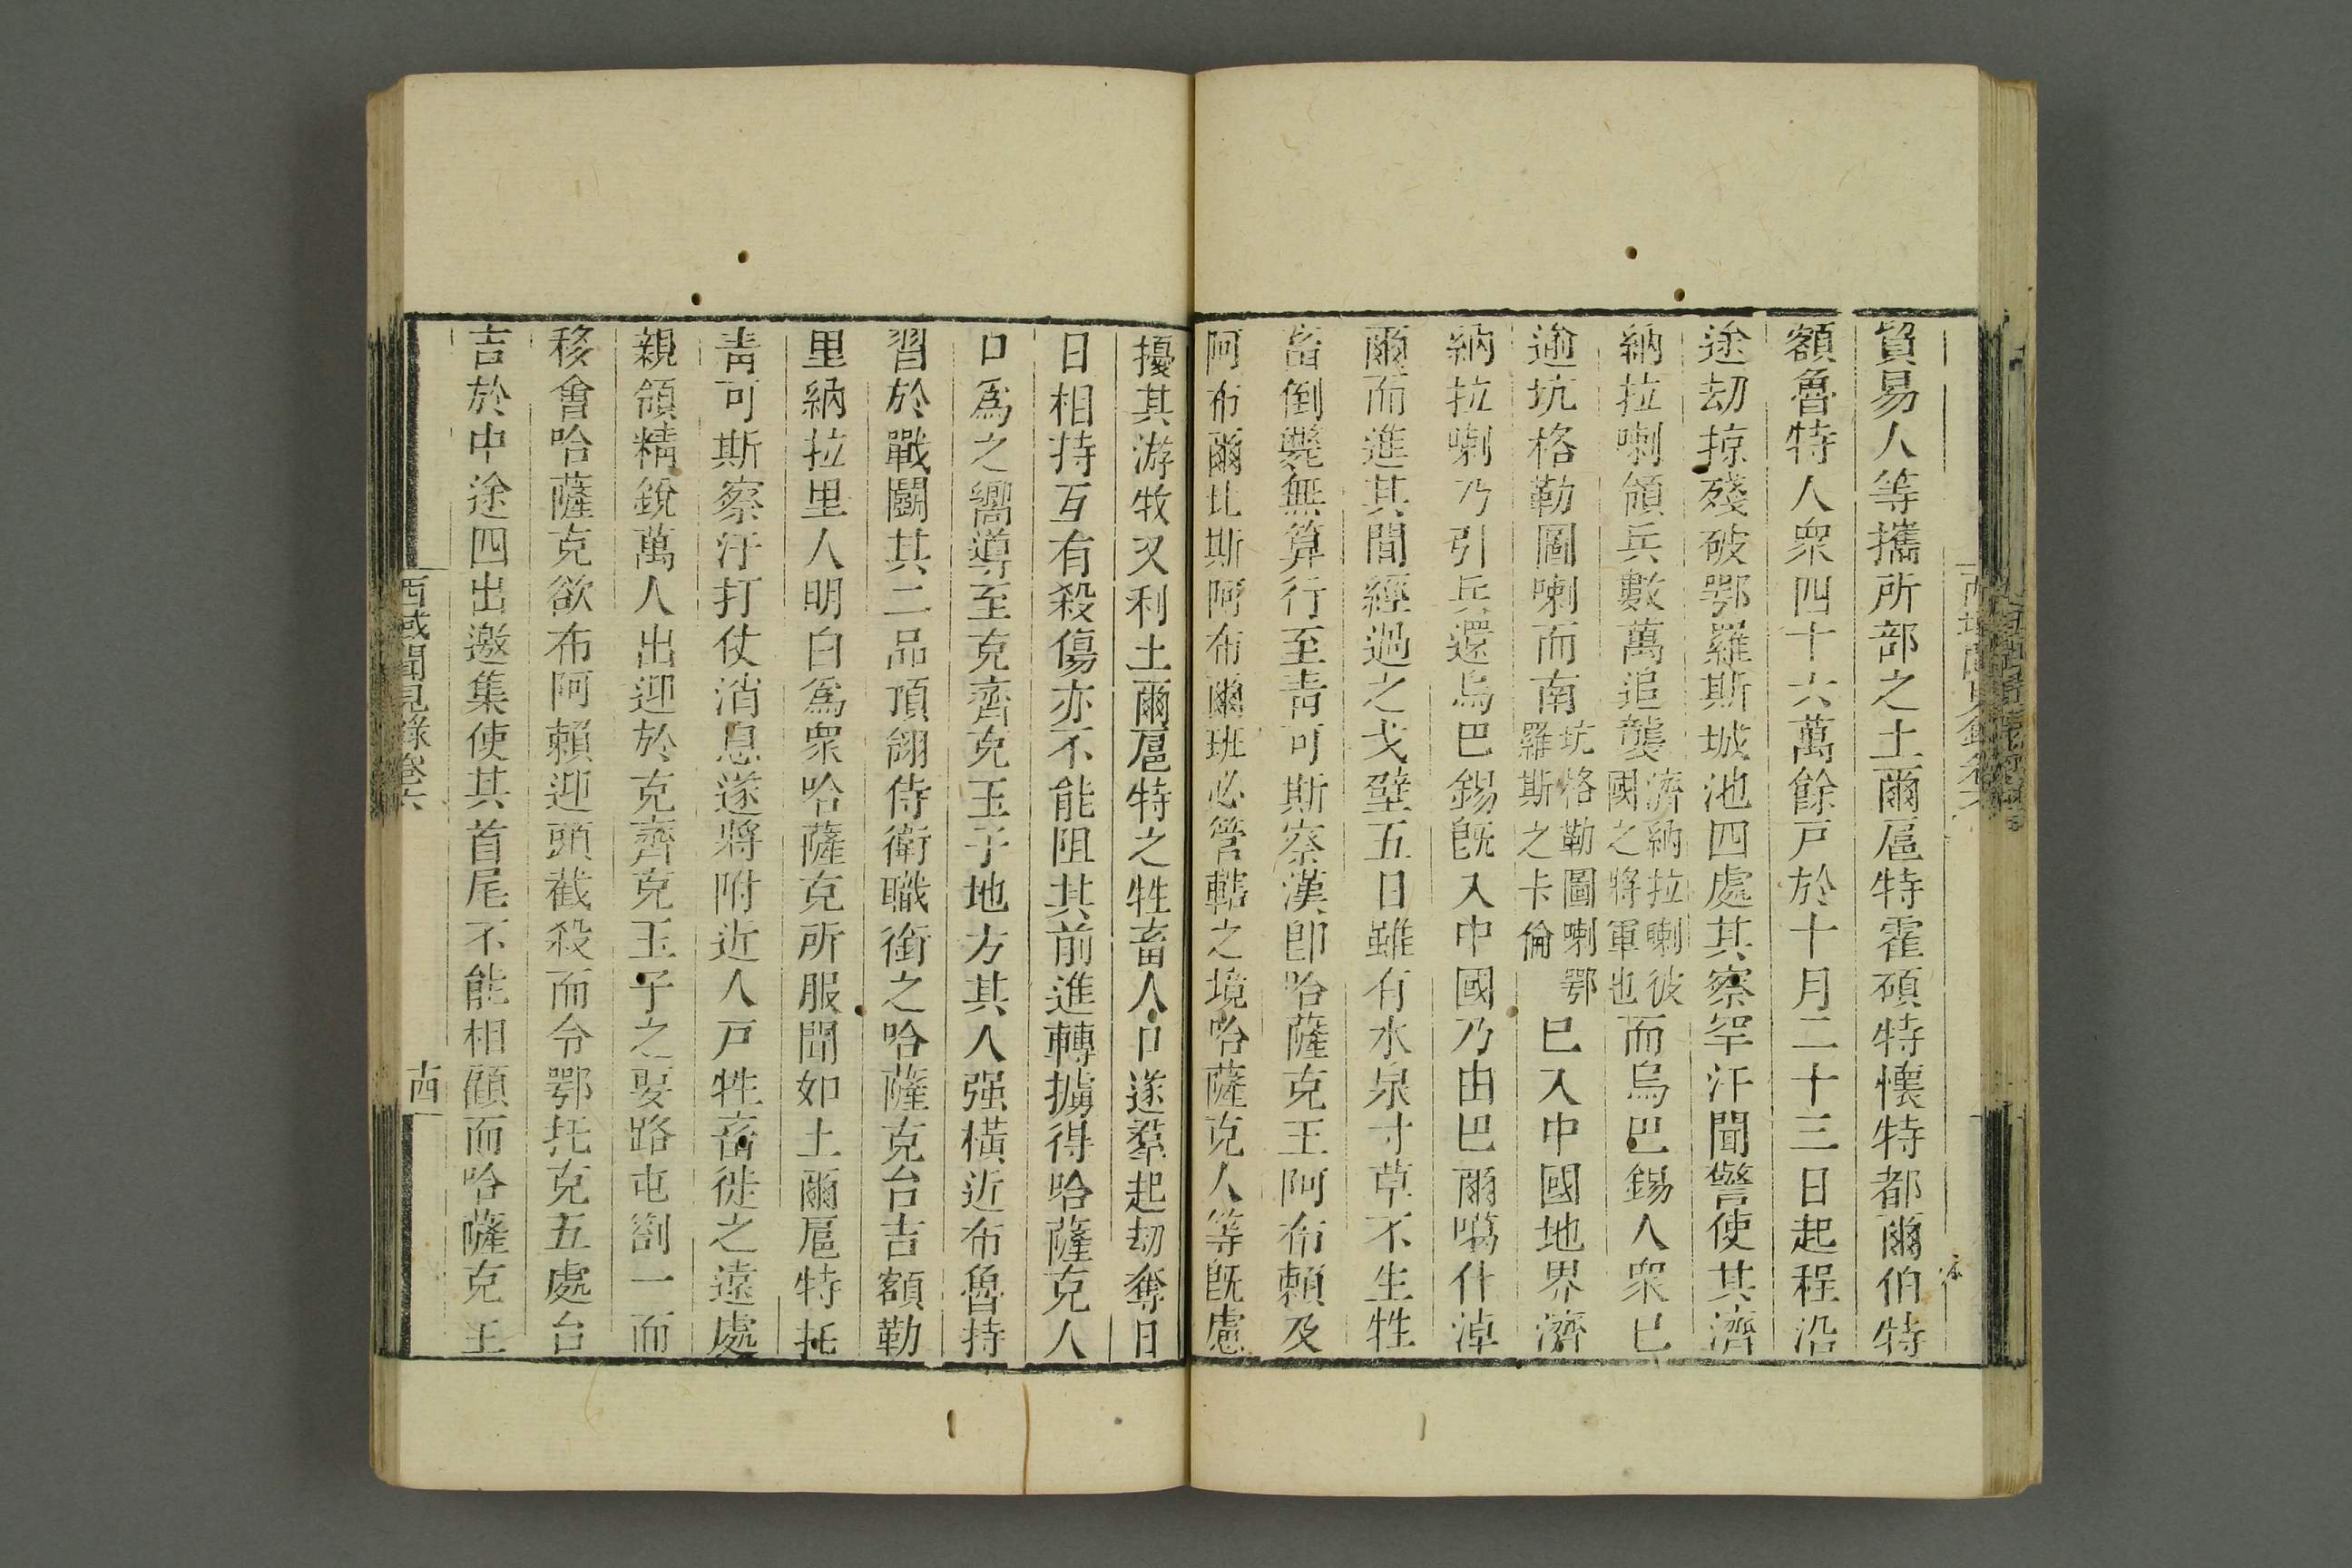 貿易人等攜所部之土爾扈特霍碩特懷特都爾伯特
額魯特人眾四十六萬餘戸於十月二十三日起程沿
途刧掠殘破鄂羅斯城池四處其察罕汗聞警使其濟
納拉喇領兵數萬追襲濟納拉喇彼國之將軍也而烏巴錫人眾已
逾坑格勒圖喇而南坑格勒圖喇鄂羅斯之卡倫已入中國地界濟
納拉喇乃引兵還烏巴錫旣入中國乃由巴爾噶什淖
爾而進其間經過之戈壁五日雖有水泉寸草不生牲
畜倒斃無算行至靑可斯察漢卽哈薩克王阿布賴及
阿布爾比斯阿布爾班必管轄之境哈薩克人等旣慮
擾其游牧又利土爾扈特之牲畜人口遂羣起刧奪日
日相持互有殺傷亦不能阻其前進轉擄得哈薩克人
口爲之嚮導至克齊克玉子地方其人强橫近布魯特
習於戰鬭其二品頂翎侍衛職銜之哈薩克台吉額勒
里納拉里人明白爲眾哈薩克所服聞如土爾扈特托
靑可斯察汗打仗消息遂將附近人戸牲畜徙之遠處
親領精銳萬人出迎於克齊克玉子之要路屯劄一而
移會哈薩克欲布阿賴迎頭截殺而令鄂托克五處台
吉於中途四出邀集使其首尾不能相顧而哈薩克王
西域聞見錄卷六